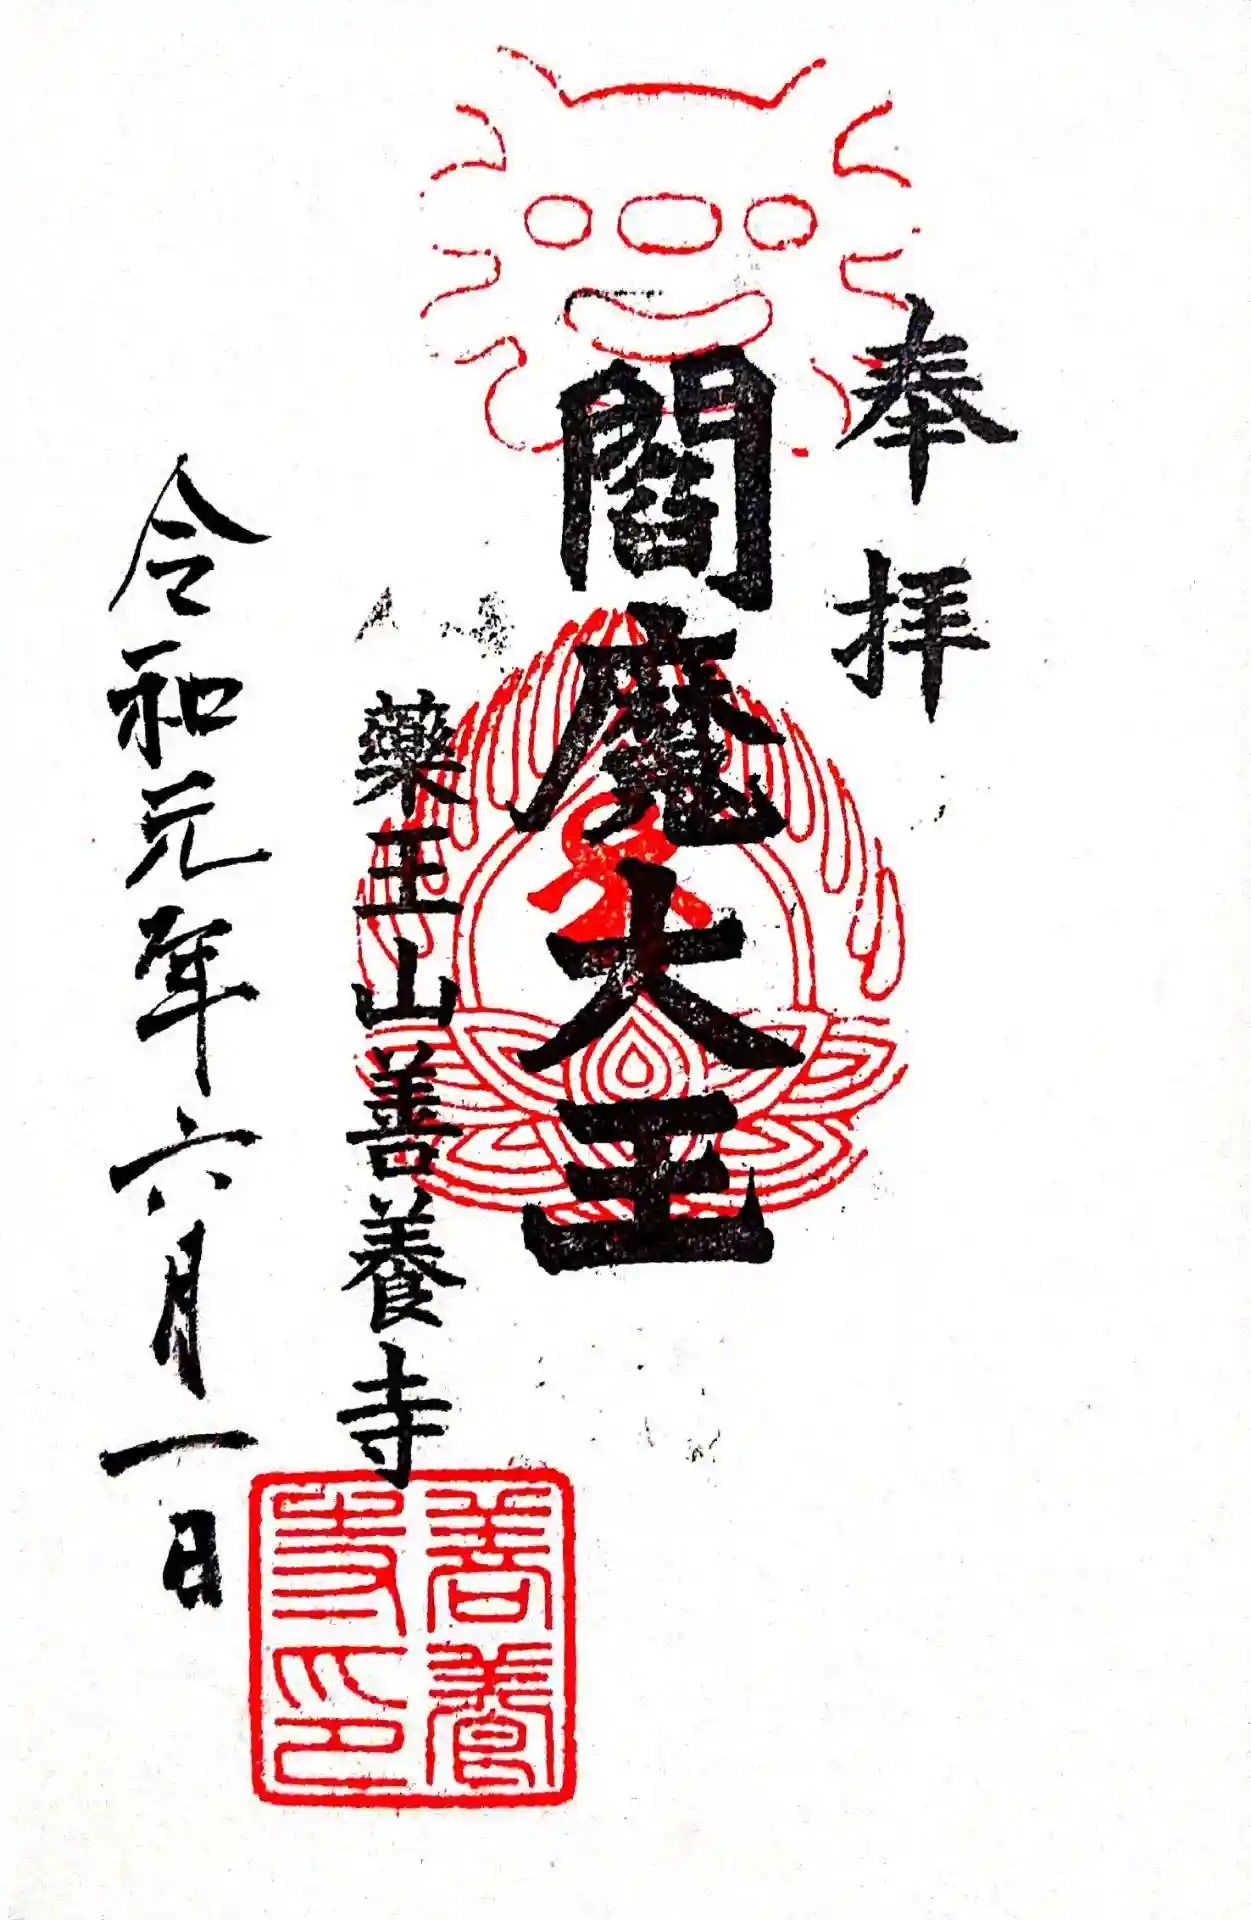 奉拝
閻魔大王
藥王山善養寺
令和元年六月一日
善養寺印